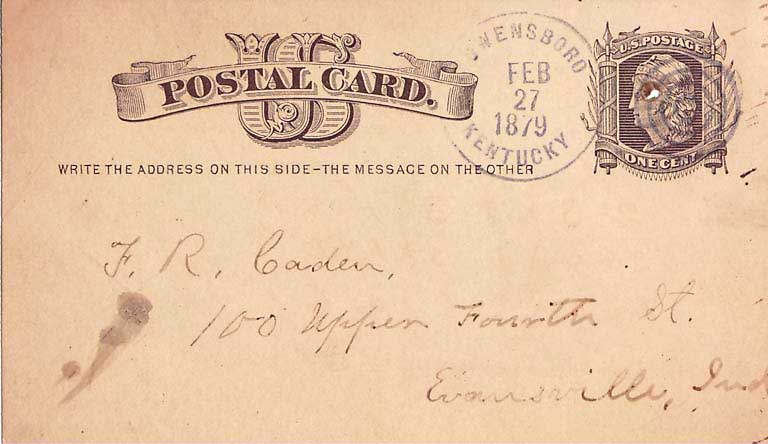 US
POSTAL CARD.
WRITE THE ADDRESS ON THIS SIDE–THE MESSAGE ON THE OTHER
OWENSBORO
FEB
27
1879
KENTUCKY
U.S. POSTAGE
ONE CENT
F. R. Caden,
100 Upper Fourth St.
Evansville, Ind